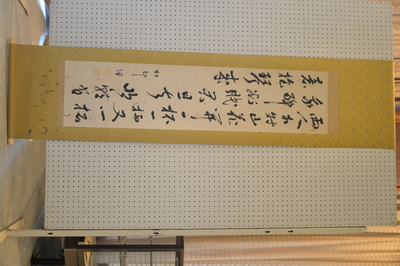 両人対酌山花開一杯一杯復一杯
我醉欲眠卿且去明朝有
意抱琴来